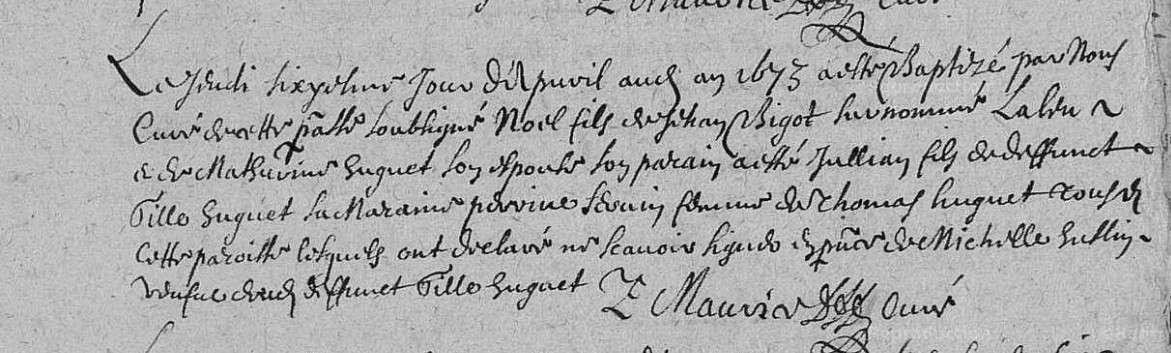 Le Jeudi sixyesme Jour d'Apvril aud an 1673 a esté Baptizé par Nous
Curé de cette psse soubsigné Noel fils de Jehan Bigot surnommé Laleu
& de Mathurine huguet son espouse son parain a esté Jullian fils de deffunct
Gille huguet sa Maraine perrine femme de Thomas huguet tous de
cette paroisse lesquels ont declaré ne scavoir signer en pnce de Michelle
veufue dud deffunct Gille huguet E Maurice Curé